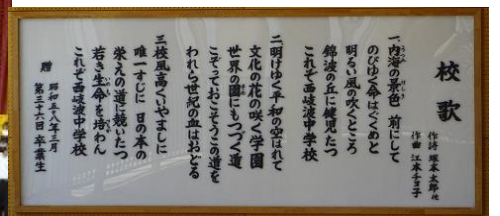 校歌
作詩 塚本太郎他
作曲 江本千ヨ子
一、内海の景色 前にして
のびゆく命はぐくめと
明るい風の吹くところ
錦波の丘に健児たつ
これぞ西岐波中学校
二明けゆく平和の空はれて
文化の花の咲く学園
世界の園にもつづく道
こぞっておこそうこの道を
われら世紀の血はおどる
三校風高くいやましに
唯一すじに 日の本の
栄えの道に競いたつ
若き生命を培わん
これぞ西岐波中学校
昭和五十八年三月
贈 第三十六回 卒業生